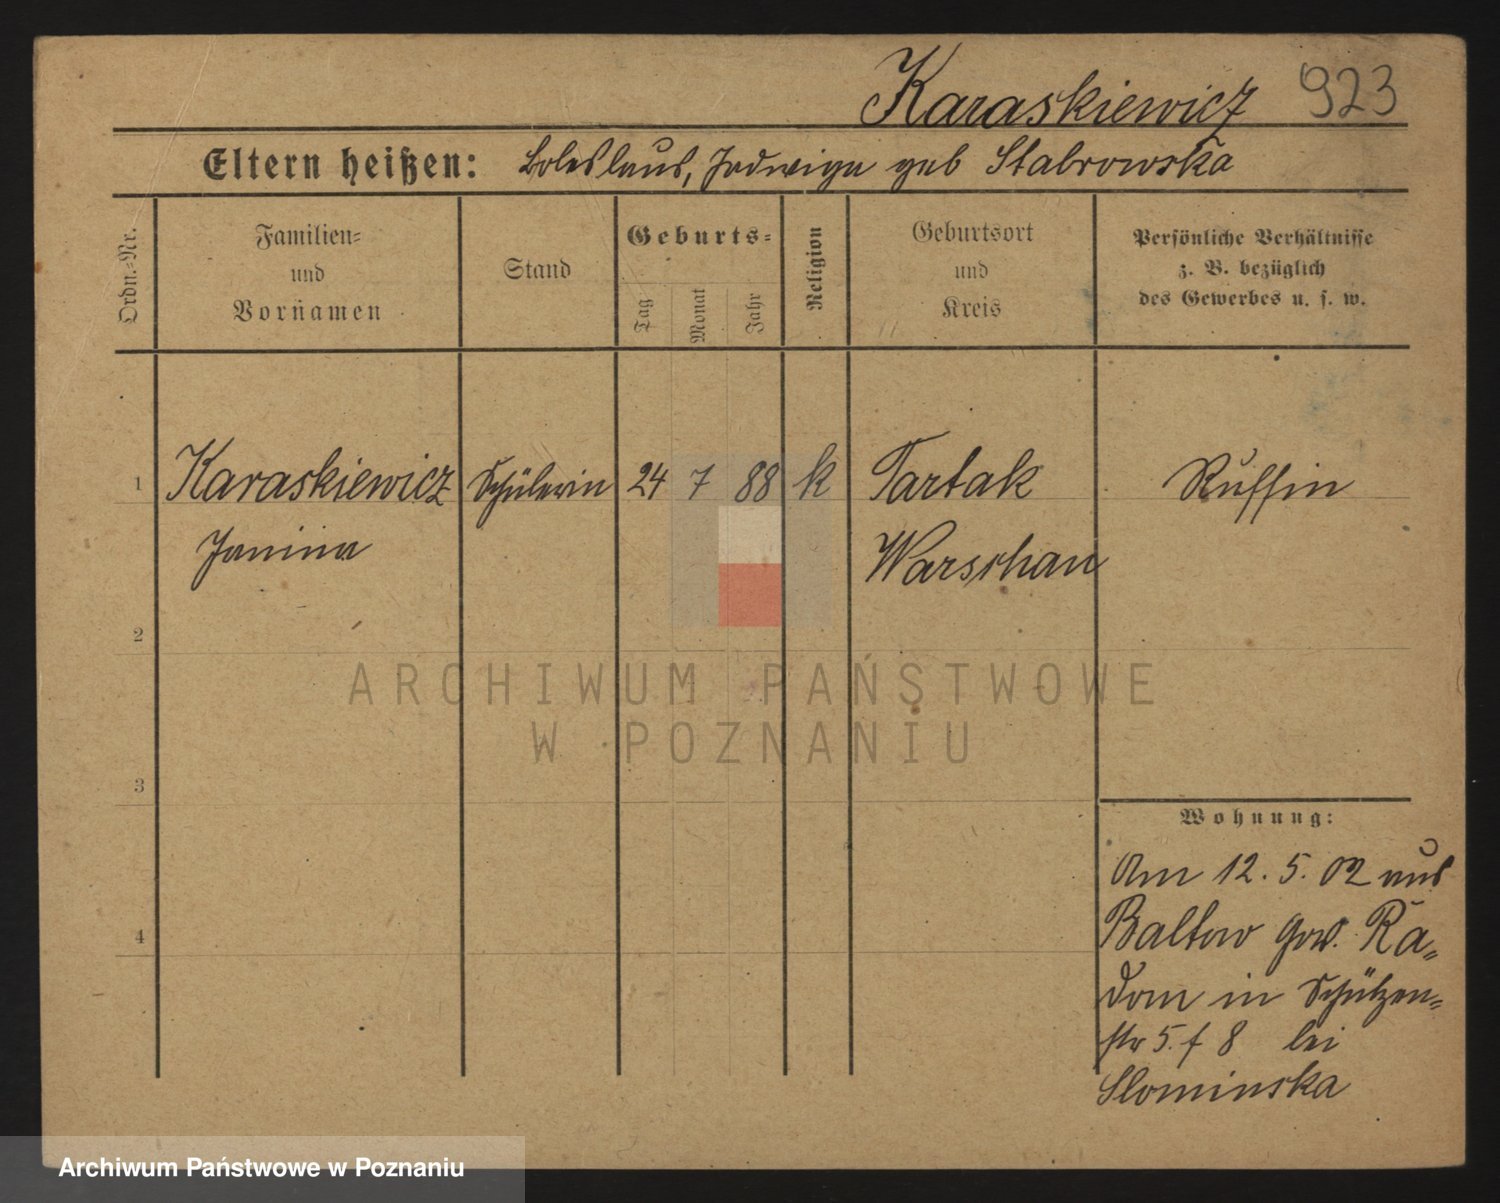 Karaskiewicz 923
Eltern heißen: Boleslaus, Jadwiga geb Stabrowska
Ordn.-Nr.
Familien-
und
Vornamen
Stand
Geburts-
Tag
Monat
Jahr
Religion
Geburtsort
und
Kreis
Persönliche Verhältnisse
z. B. bezüglich
des Gewerbes u. s. w.
1 Karaskiewicz Schülerin 24 7 88 k Tartak Russin
Janina Warschau
2
3
4
ARCHIWUM PAŃSTWOWE
W POZNANIU
Wohnung:
Am 12. 5. 02 aus
Baltow Gov. Ra-
dom in Schützen-
str 5. f 8 bei
Slominska
Archiwum Państwowe w Poznaniu